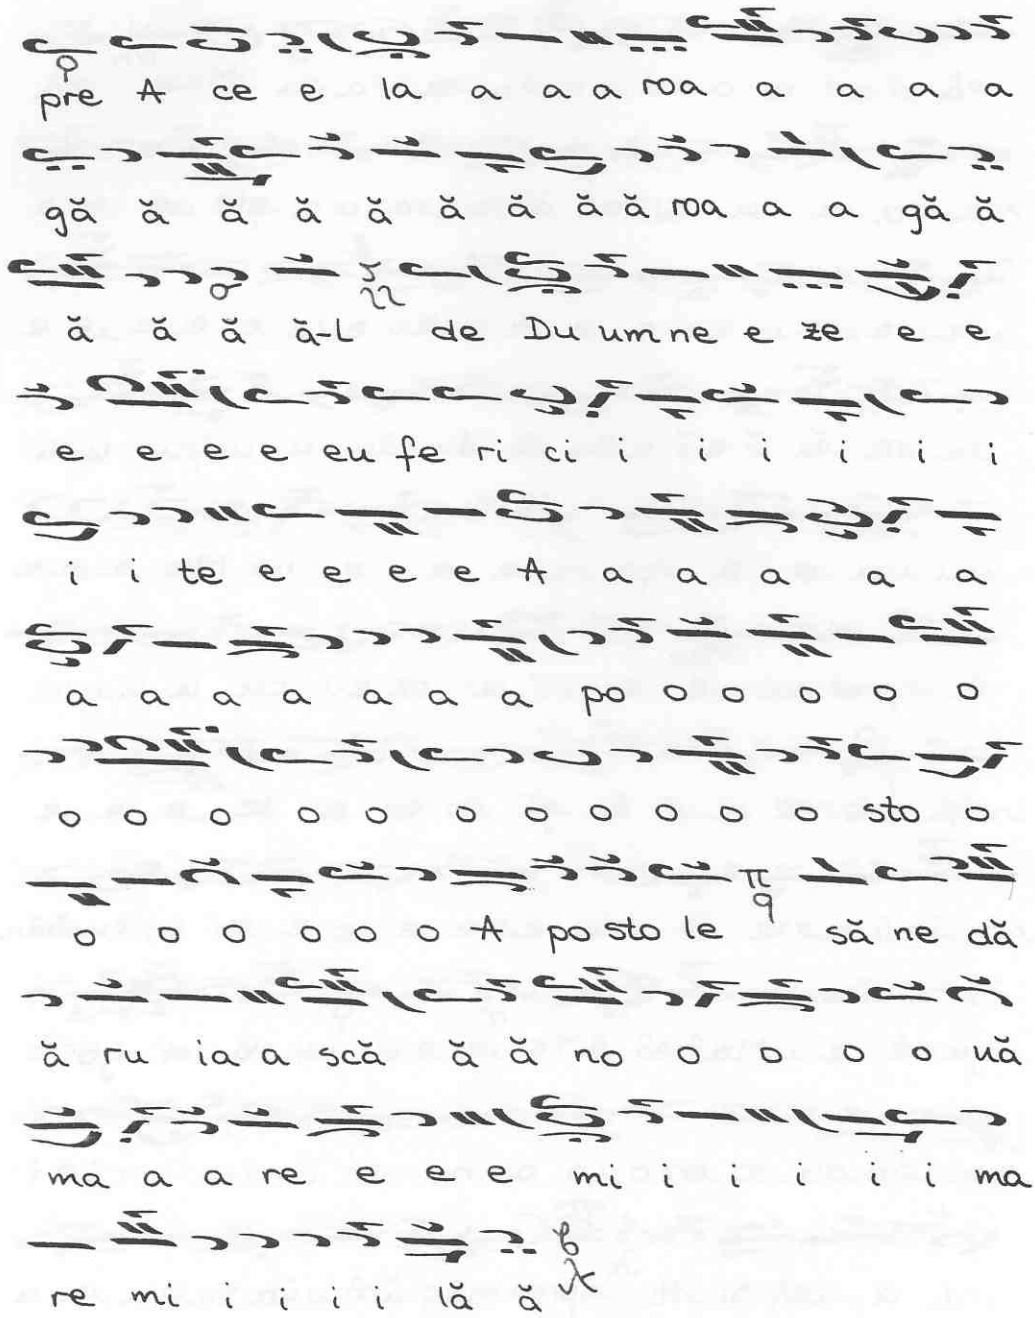 pre A ce e ia a a a za a a a a
gă ă ă ă ă ă ă ă ă za a a gă ă
ă ă ă ă-L de Du um ne e ze e e
e e e e eu fe ri ci i i i i i i
i i te e e e e A a a a a a
a a a a a a a po o o o o o
o o o o o o o o o o o sto o
o o o o o o A po sto le să ne dă
ă ru ia a scă ă ă no o o o o uă
ma a a re e e e mi i i i i i ma
re mi i i i i dă ă